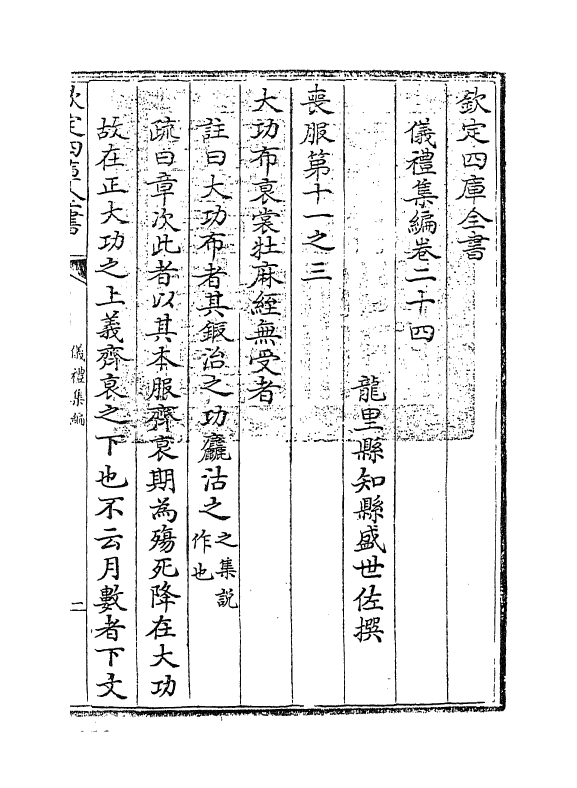 欽定四庫全書
儀禮集編卷二十四
龍里縣知縣盛世佐撰
喪服第十一之三
大功布衰裳牡麻絰無受者
註曰大功布者其鍜治之功麤沽之之集說作也
疏曰章次此者以其本服齊衰期為殤死降在大功
故在正大功之上義齊衰之下也不云月數者下文
欽定四庫全書
儀禮集編